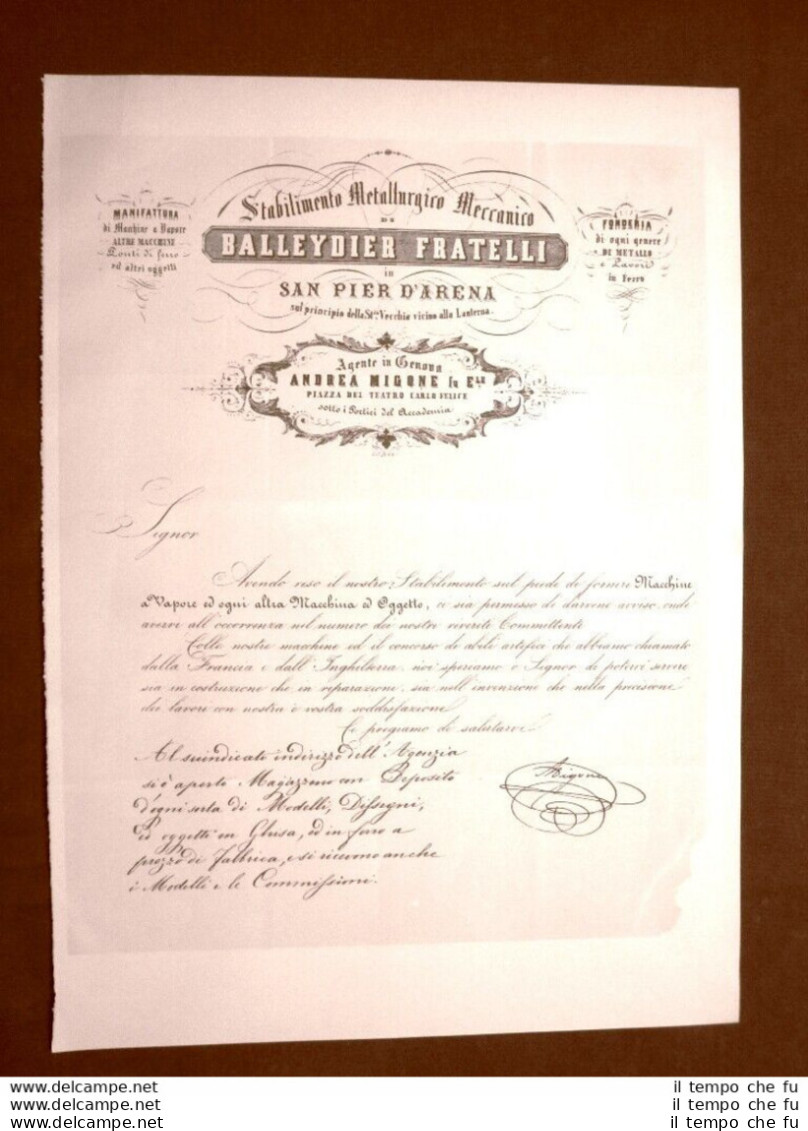 Stabilimento Metallurgico Meccanico
DI
BALLEYDIER FRATELLI
in
SAN PIER D'ARENA
sul principio della St.da Vecchia vicino alla Lanterna.
MANIFATTURA
di Macchine a Vapore
ALTRE MACCHINE
Ponti di ferro
ed altri oggetti
FONDERIA
di ogni genere
DI METALLO
e Lavori
in Ferro
Agente in Genova
ANDREA MIGONE fu E.
PIAZZA DEL TEATRO CARLO FELICE
sotto i Portici del Accademia
Signor
Avendo reso il nostro Stabilimento sul piede di fornire Macchine
a Vapore ed ogni altra Macchina ed Oggetto, ci sia permesso di darvene avviso, onde
avervi all'occorrenza nel numero dei nostri riveriti Committenti.
Colle nostre macchine ed il concorso de abili artefici che abbiamo chiamato
dalla Francia e dall'Inghilterra, noi speriamo o Signor di potervi servire
sia in costruzione che in riparazione, sia nell'invenzione che nella precisione
dei lavori con nostra e vostra soddisfazione.
Ci pregiamo di salutarvi
Al suindicato indirizzo dell'Agenzia
si è aperto Magazzeno con Deposito
d'ogni sorta di Modelli, Dissegni,
ed oggetti in Ghisa, ed in ferro a
prezzo di Fabbrica, e si ricevono anche
i Modelli e le Commissioni.
AMigone
www.delcampe.net
www.delcampe.net
www.delcampe.net
il tempo che fu
il tempo che fu
il tempo che fu